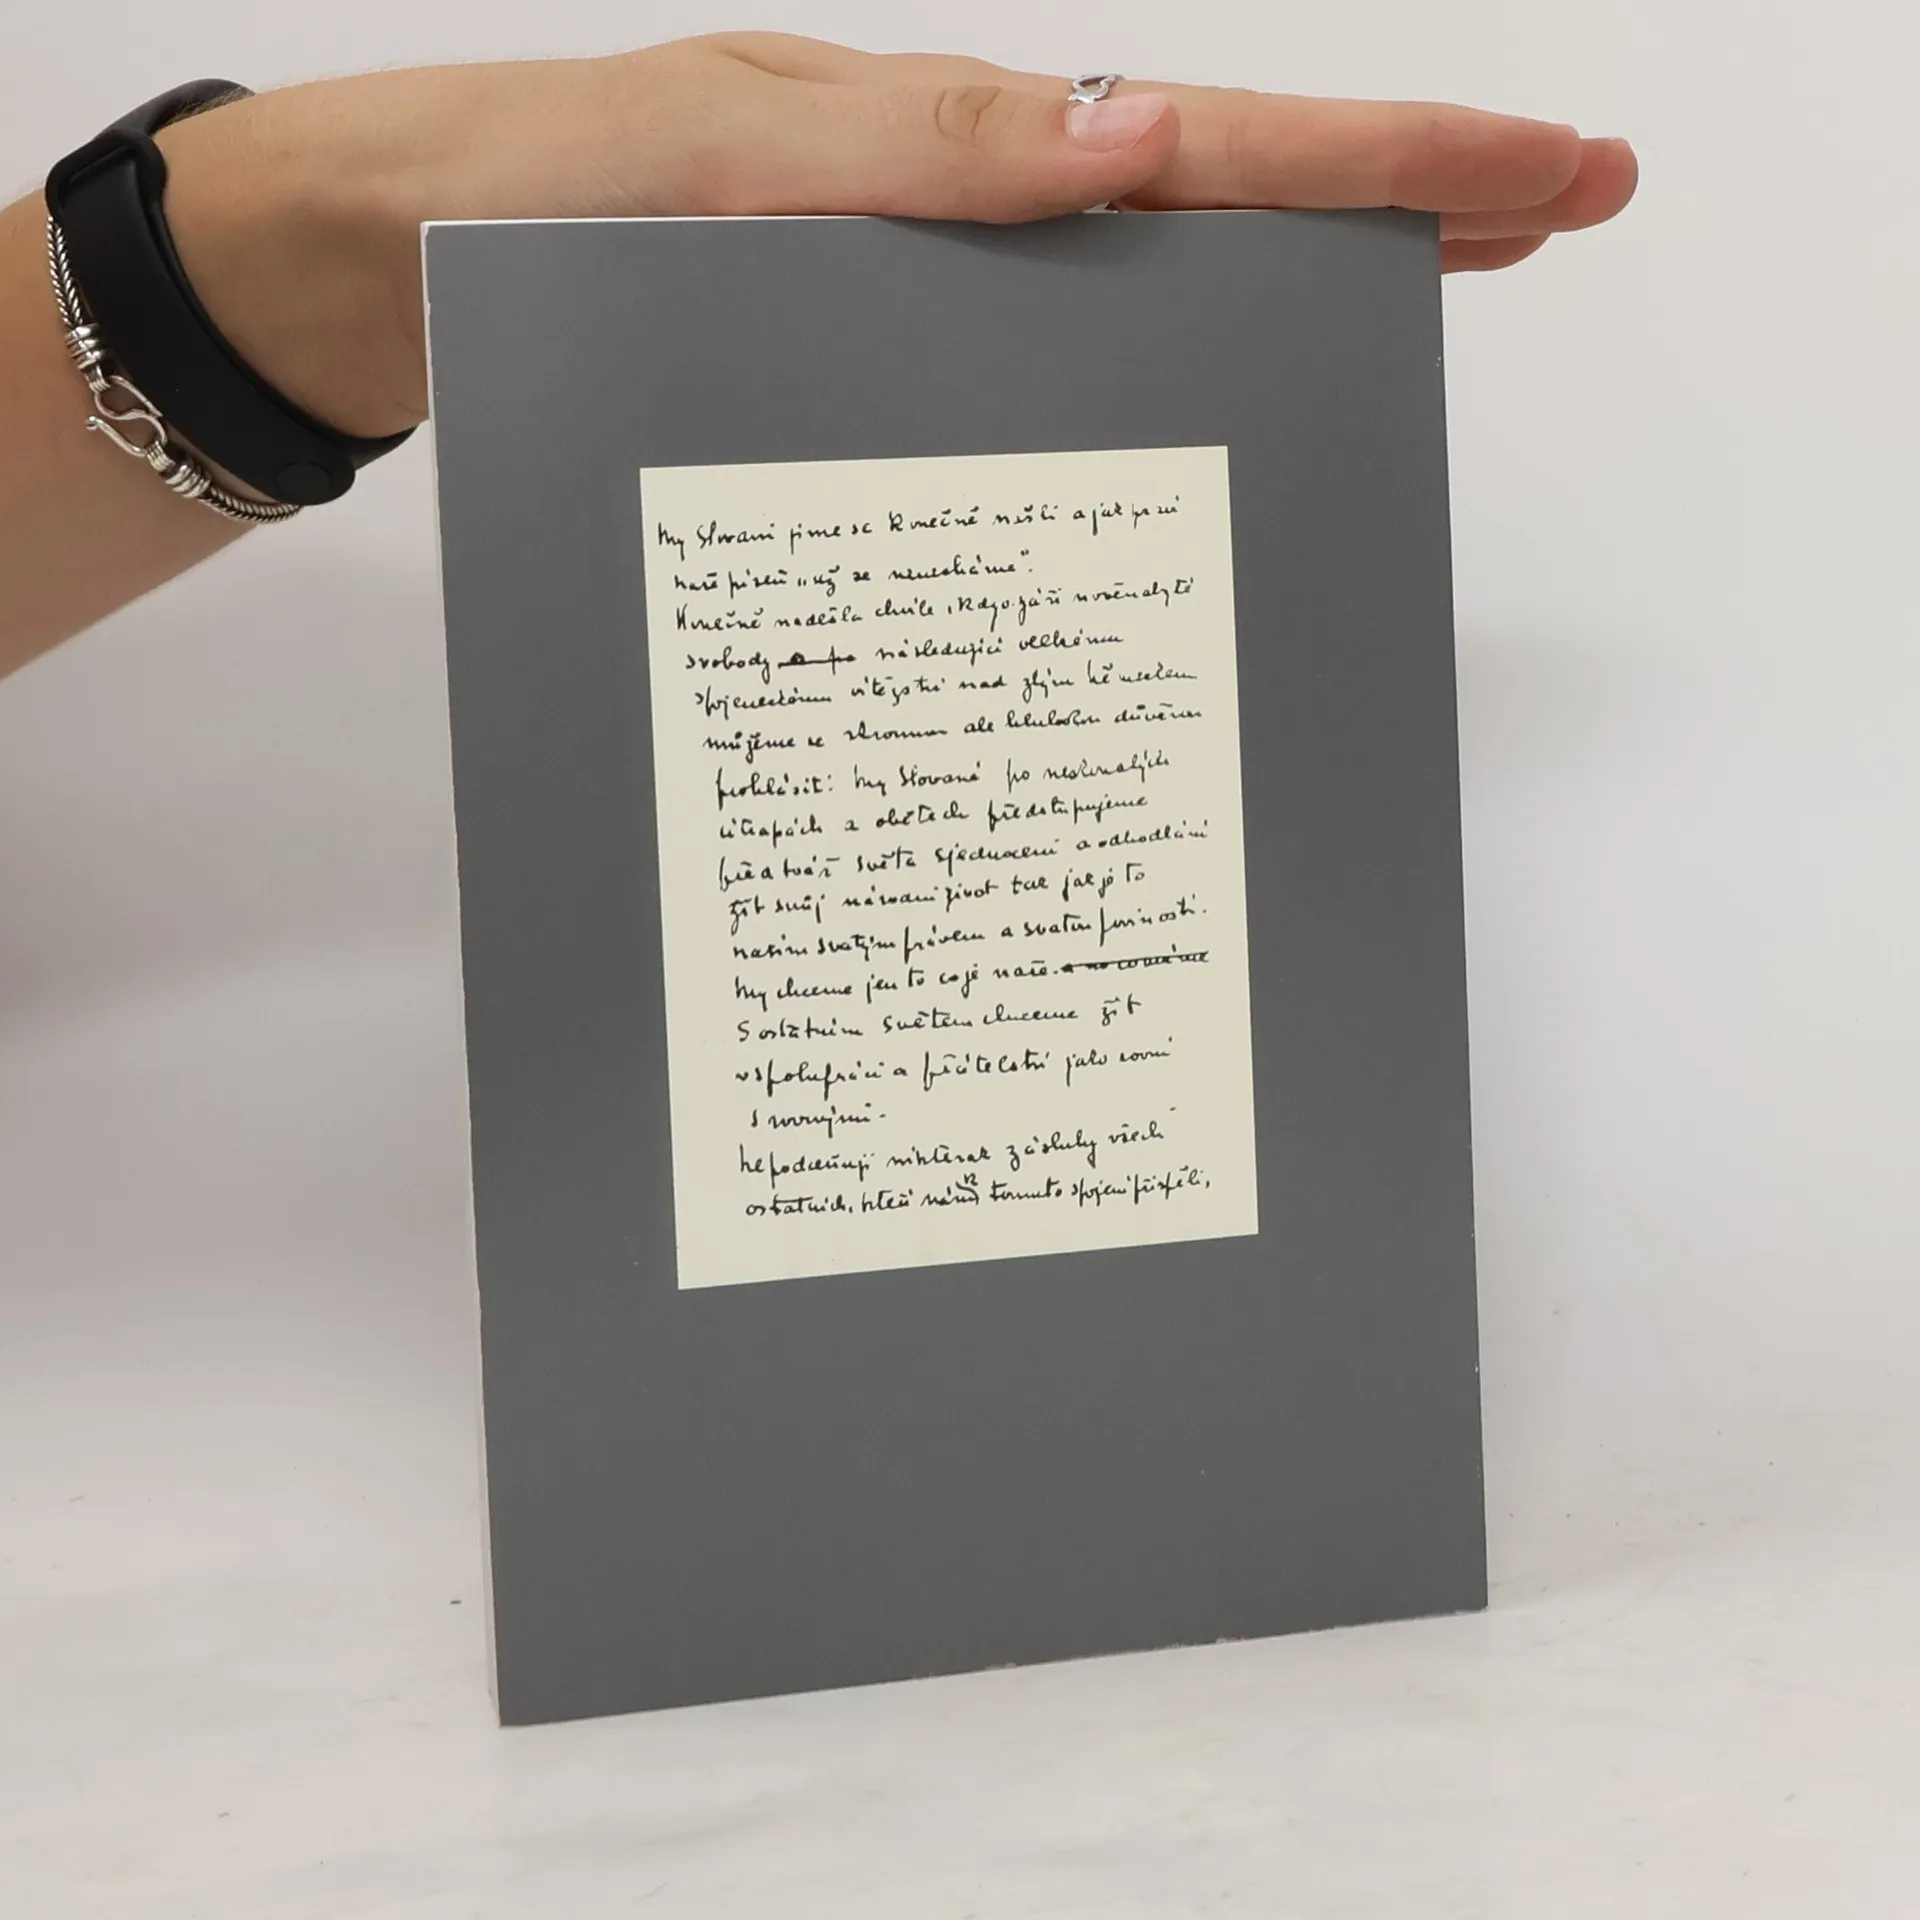 My Slované jsme se konečně našli a jak praví
naše píseň „už se nenecháme“.
Konečně nadešla chvíle, kdy v záři nověnabyté
svobody následující velkému
spojeneckému vítězství nad zlým německem
můžeme se skromnou ale hlubokou důvěrou
prohlásit: My Slované po neskonalých
útrapách a obětech předstupujeme
před tvář světa sjednoceni a odhodláni
žít svůj národní život tak jak je to
naším svatým právem a svatou povinností.
My chceme jen to co je naše.
S ostatním světem chceme žít
v spolupráci a přátelství jako rovní
s rovnými.
Nepodceňuji nikterak zásluhy všech
ostatních, kteří nám k tomuto spojení přispěli,